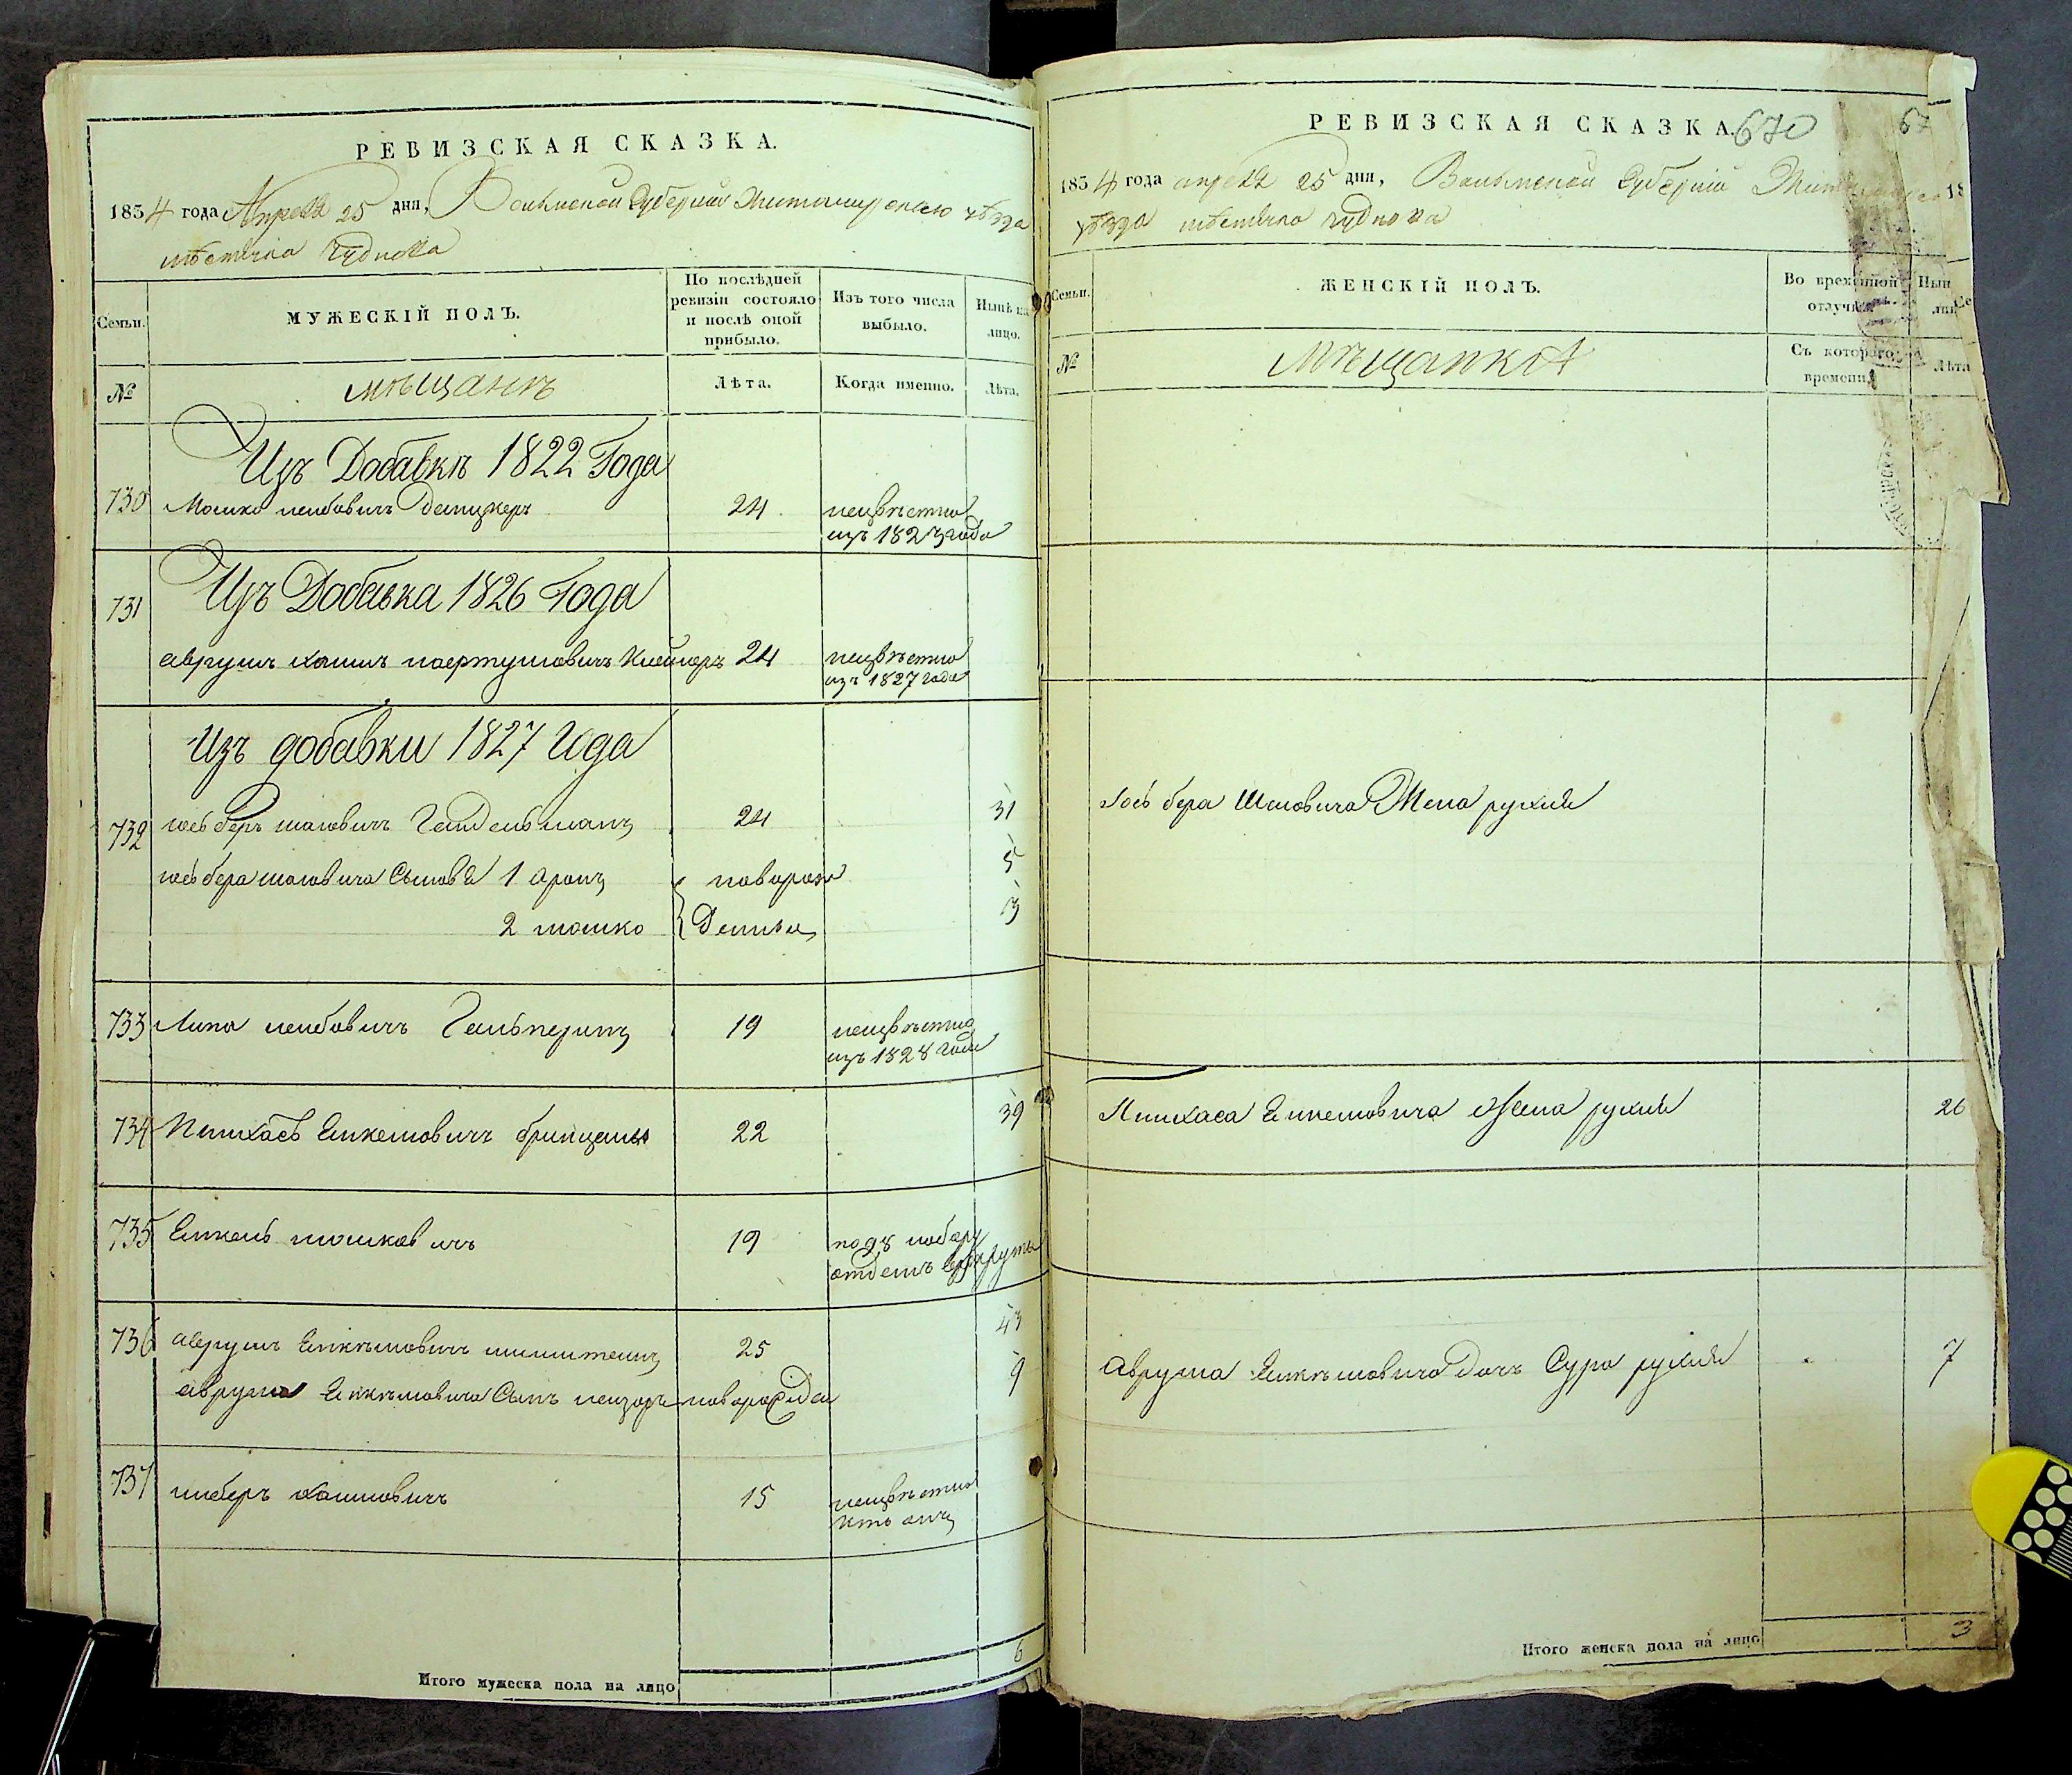 РЕВИЗСКАЯ СКАЗКА.
1834 года Апреля 25 дня, Волынской Губернии Житомирского уѣзда
мѣстечка Чуднова
Семьи.
МУЖЕСКІЙ ПОЛЪ.
По послѣдней ревизіи состояло и послѣ оной прибыло.
Изъ того числа выбыло.
Нынѣ на лицо.
№
мѣщанѣ
Лѣта.
Когда именно.
Лѣта.
Изъ Добавкѣ 1822 Года
730 Мошко лейбовичъ Данцкеръ 24 неизвѣстно
изъ 1823 года
Изъ Добавка 1826 Года
731
аврумъ хаимъ 24 неизвѣстно
изъ 1827 года
Изъ добавки 1827 Года
732 іосьберъ шаевичъ Гендельманъ 24 31
іосьбера шаевича Сынове 1 аронъ новорож 5
2 мошко Денные 3
733 Липа лейбовичъ Гальперинъ 19 неизвѣстно
изъ 1828 года
734 Пинхасъ Енкелевичъ 22 39
735 Енкель мошковичъ 19 подъ наборъ
отданъ врекруты
736 аврумъ Енкѣлевичъ 25 43
аврума Енкѣлевича Сынъ лейзоръ новорожден 9
737 шиберъ хаимовичъ 15 неизвѣстно
Итого мужеска пола на лицо 6
РЕВИЗСКАЯ СКАЗКА. 670
1834 года апреля 25 дня, Волынской Губерніи
уѣзда мѣстечка Чуднова
Семьи.
ЖЕНСКІЙ ПОЛЪ.
Во временной отлучкѣ
№
Мѣщанка
Съ котораго времени.
Лѣта
Іосьбера Шаевича Жена рухля
Пинхаса Енкелевича Жена рухля 26
Аврума Енкѣлевича Дочь Сура рухля 7
Итого женска пола на лицо 3